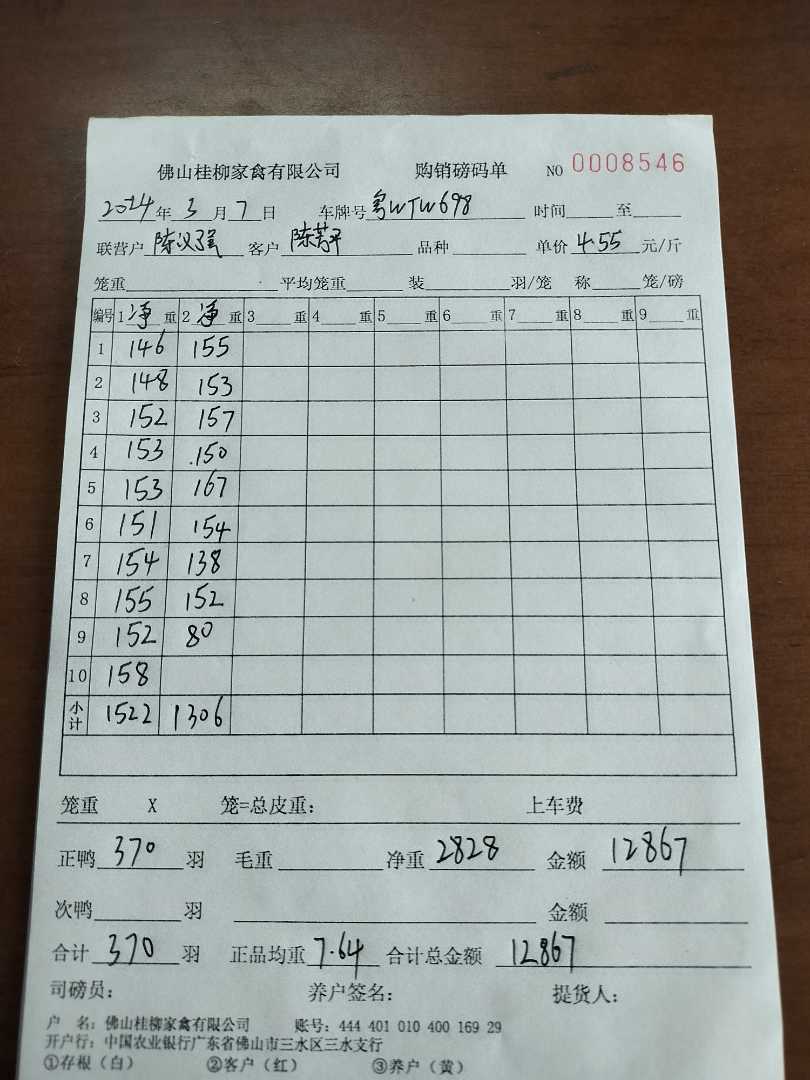 佛山桂柳家禽有限公司 购销磅码单 NO 0008546
2024年3月7日 车牌号 粤WTW698 时间 至
联营户 陈汉强 客户 陈芳平 品种 单价 4.55 元/斤
笼重 平均笼重 装 羽/笼 称 笼/磅
编号 1 净 重 2 净 重 3 重 4 重 5 重 6 重 7 重 8 重 9 重
1 146 155
2 148 153
3 152 157
4 153 150
5 153 167
6 151 154
7 154 138
8 155 152
9 152 80
10 158
小计 1522 1306
笼重 X 笼=总皮重: 上车费
正鸭 370 羽 毛重 净重 2828 金额 12867
次鸭 羽 金额
合计 370 羽 正品均重 7.64 合计总金额 12867
司磅员: 养户签名: 提货人:
户 名: 佛山桂柳家禽有限公司 账号: 444 401 010 400 169 29
开户行: 中国农业银行广东省佛山市三水区三水支行
①存根（白） ②客户（红） ③养户（黄）